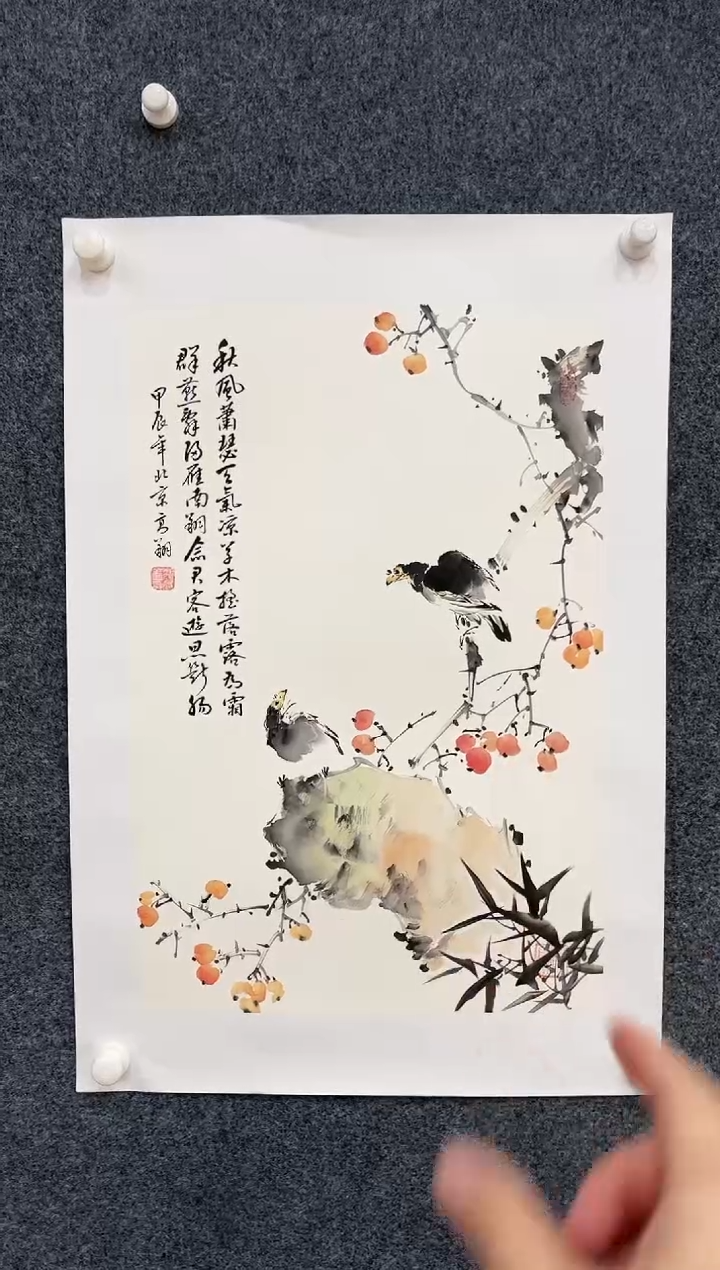 秋風蕭瑟天氣凉草木摇落露為霜
群燕辭歸雁南翔念君客遊思斷腸
甲辰年北京高翔